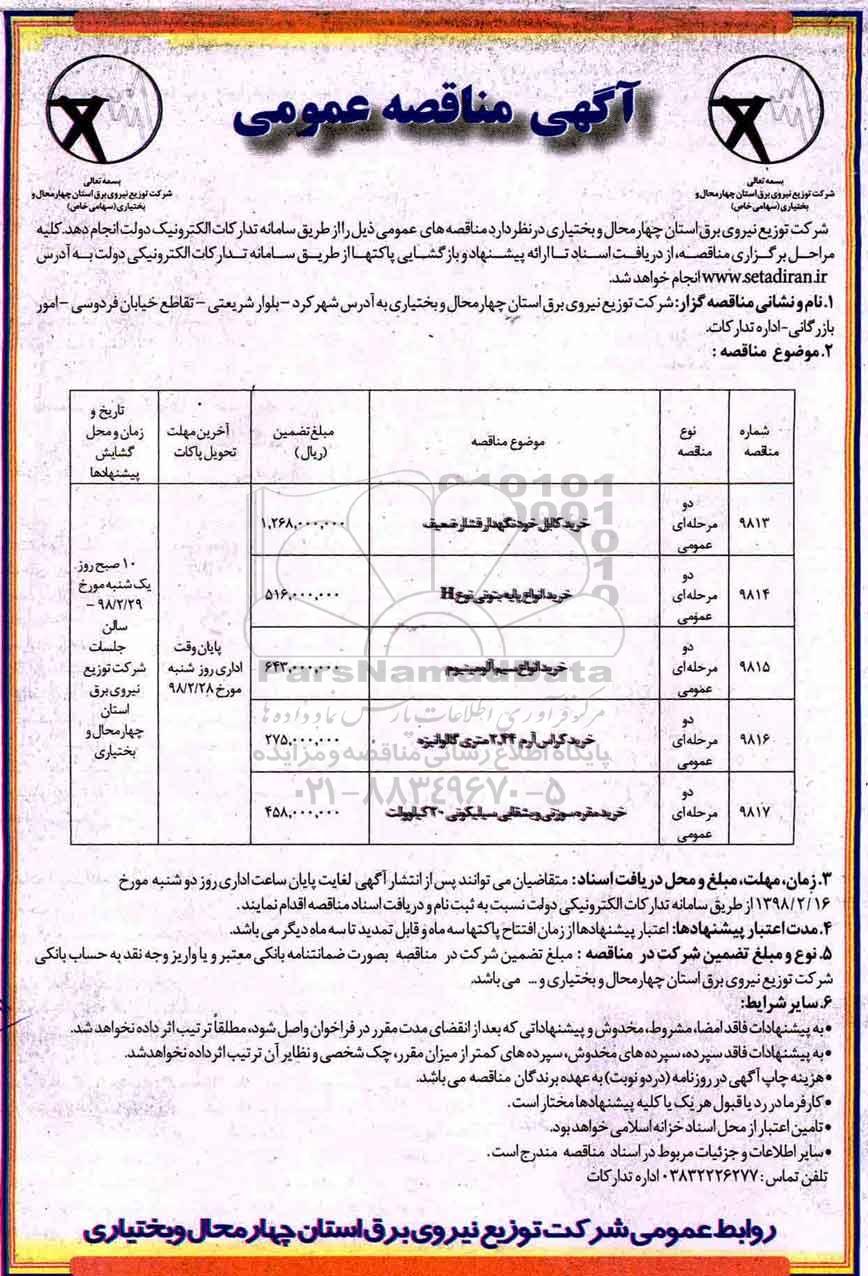 آگهی مناقصه عمومی
بسمه تعالی
شرکت توزیع نیروی برق استان چهارمحال و
بختیاری (سهامی خاص)
بسمه تعالی
شرکت توزیع نیروی برق استان چهارمحال و
بختیاری (سهامی خاص)
شرکت توزیع نیروی برق استان چهارمحال و بختیاری در نظر دارد مناقصه های عمومی ذیل را از طریق سامانه تدارکات الکترونیک دولت انجام دهد. کلیه
مراحل برگزاری مناقصه، از دریافت اسناد تا ارائه پیشنهاد و بازگشایی پاکتها از طریق سامانه تدارکات الکترونیکی دولت به آدرس
www.setadiran.ir انجام خواهد شد.
۱. نام و نشانی مناقصه گزار: شرکت توزیع نیروی برق استان چهارمحال و بختیاری به آدرس شهرکرد – بلوار شریعتی – تقاطع خیابان فردوسی – امور
بازرگانی- اداره تدارکات.
۲. موضوع مناقصه :
شماره مناقصه
نوع مناقصه
موضوع مناقصه
مبلغ تضمین (ریال)
آخرین مهلت تحویل پاکات
تاریخ و زمان و محل گشایش پیشنهادها
۹۸۱۳
دو مرحله ای عمومی
خرید کابل خودنگهدار فشار ضعیف
۱,۲۶۸,۰۰۰,۰۰۰
۹۸۱۴
دو مرحله ای عمومی
خرید انواع پایه بتونی نوع H
۵۱۶,۰۰۰,۰۰۰
۹۸۱۵
دو مرحله ای عمومی
خرید انواع سیم آلومینیوم
۶۴۳,۰۰۰,۰۰۰
۹۸۱۶
دو مرحله ای عمومی
خرید کراس آرم ۲,۴۴ متری گالوانیزه
۲۷۵,۰۰۰,۰۰۰
۹۸۱۷
دو مرحله ای عمومی
خرید مقره سوزنی و بشقابی سیلیکونی ۲۰ کیلوولت
۴۵۸,۰۰۰,۰۰۰
پایان وقت
اداری روز شنبه
مورخ ۹۸/۲/۲۸
۱۰ صبح روز
یک شنبه مورخ
۹۸/۲/۲۹ –
سالن
جلسات
شرکت توزیع
نیروی برق
استان
چهارمحال و
بختیاری
ParsNamadData
مرکز فرآوری اطلاعات پارس نماد داده ها
پایگاه اطلاع رسانی مناقصه و مزایده
۰۲۱-۸۸۳۴۹۶۷۰-۵
۳. زمان، مهلت، مبلغ و محل دریافت اسناد: متقاضیان می توانند پس از انتشار آگهی لغایت پایان ساعت اداری روز دو شنبه مورخ
۱۳۹۸/۲/۱۶ از طریق سامانه تدارکات الکترونیکی دولت نسبت به ثبت نام و دریافت اسناد مناقصه اقدام نمایند.
۴. مدت اعتبار پیشنهادها: اعتبار پیشنهادها از زمان افتتاح پاکتها سه ماه و قابل تمدید تا سه ماه دیگر می باشد.
۵. نوع و مبلغ تضمین شرکت در مناقصه : مبلغ تضمین شرکت در مناقصه بصورت ضمانتنامه بانکی معتبر و یا واریز وجه نقد به حساب بانکی
شرکت توزیع نیروی برق استان چهارمحال و بختیاری و ... می باشد.
۶. سایر شرایط:
• به پیشنهادات فاقد امضا، مشروط، مخدوش و پیشنهاداتی که بعد از انقضای مدت مقرر در فراخوان واصل شود، مطلقاً ترتیب اثر داده نخواهد شد.
• به پیشنهادات فاقد سپرده، سپرده های مخدوش، سپرده های کمتر از میزان مقرر، چک شخصی و نظایر آن ترتیب اثر داده نخواهد شد.
• هزینه چاپ آگهی در روزنامه (در دو نوبت) به عهده برندگان مناقصه می باشد.
• کارفرما در رد یا قبول هر یک یا کلیه پیشنهادها مختار است.
• تامین اعتبار از محل اسناد خزانه اسلامی خواهد بود.
• سایر اطلاعات و جزئیات مربوط در اسناد مناقصه مندرج است.
تلفن تماس: ۰۳۸۳۲۲۲۶۲۷۷ اداره تدارکات
روابط عمومی شرکت توزیع نیروی برق استان چهارمحال و بختیاری